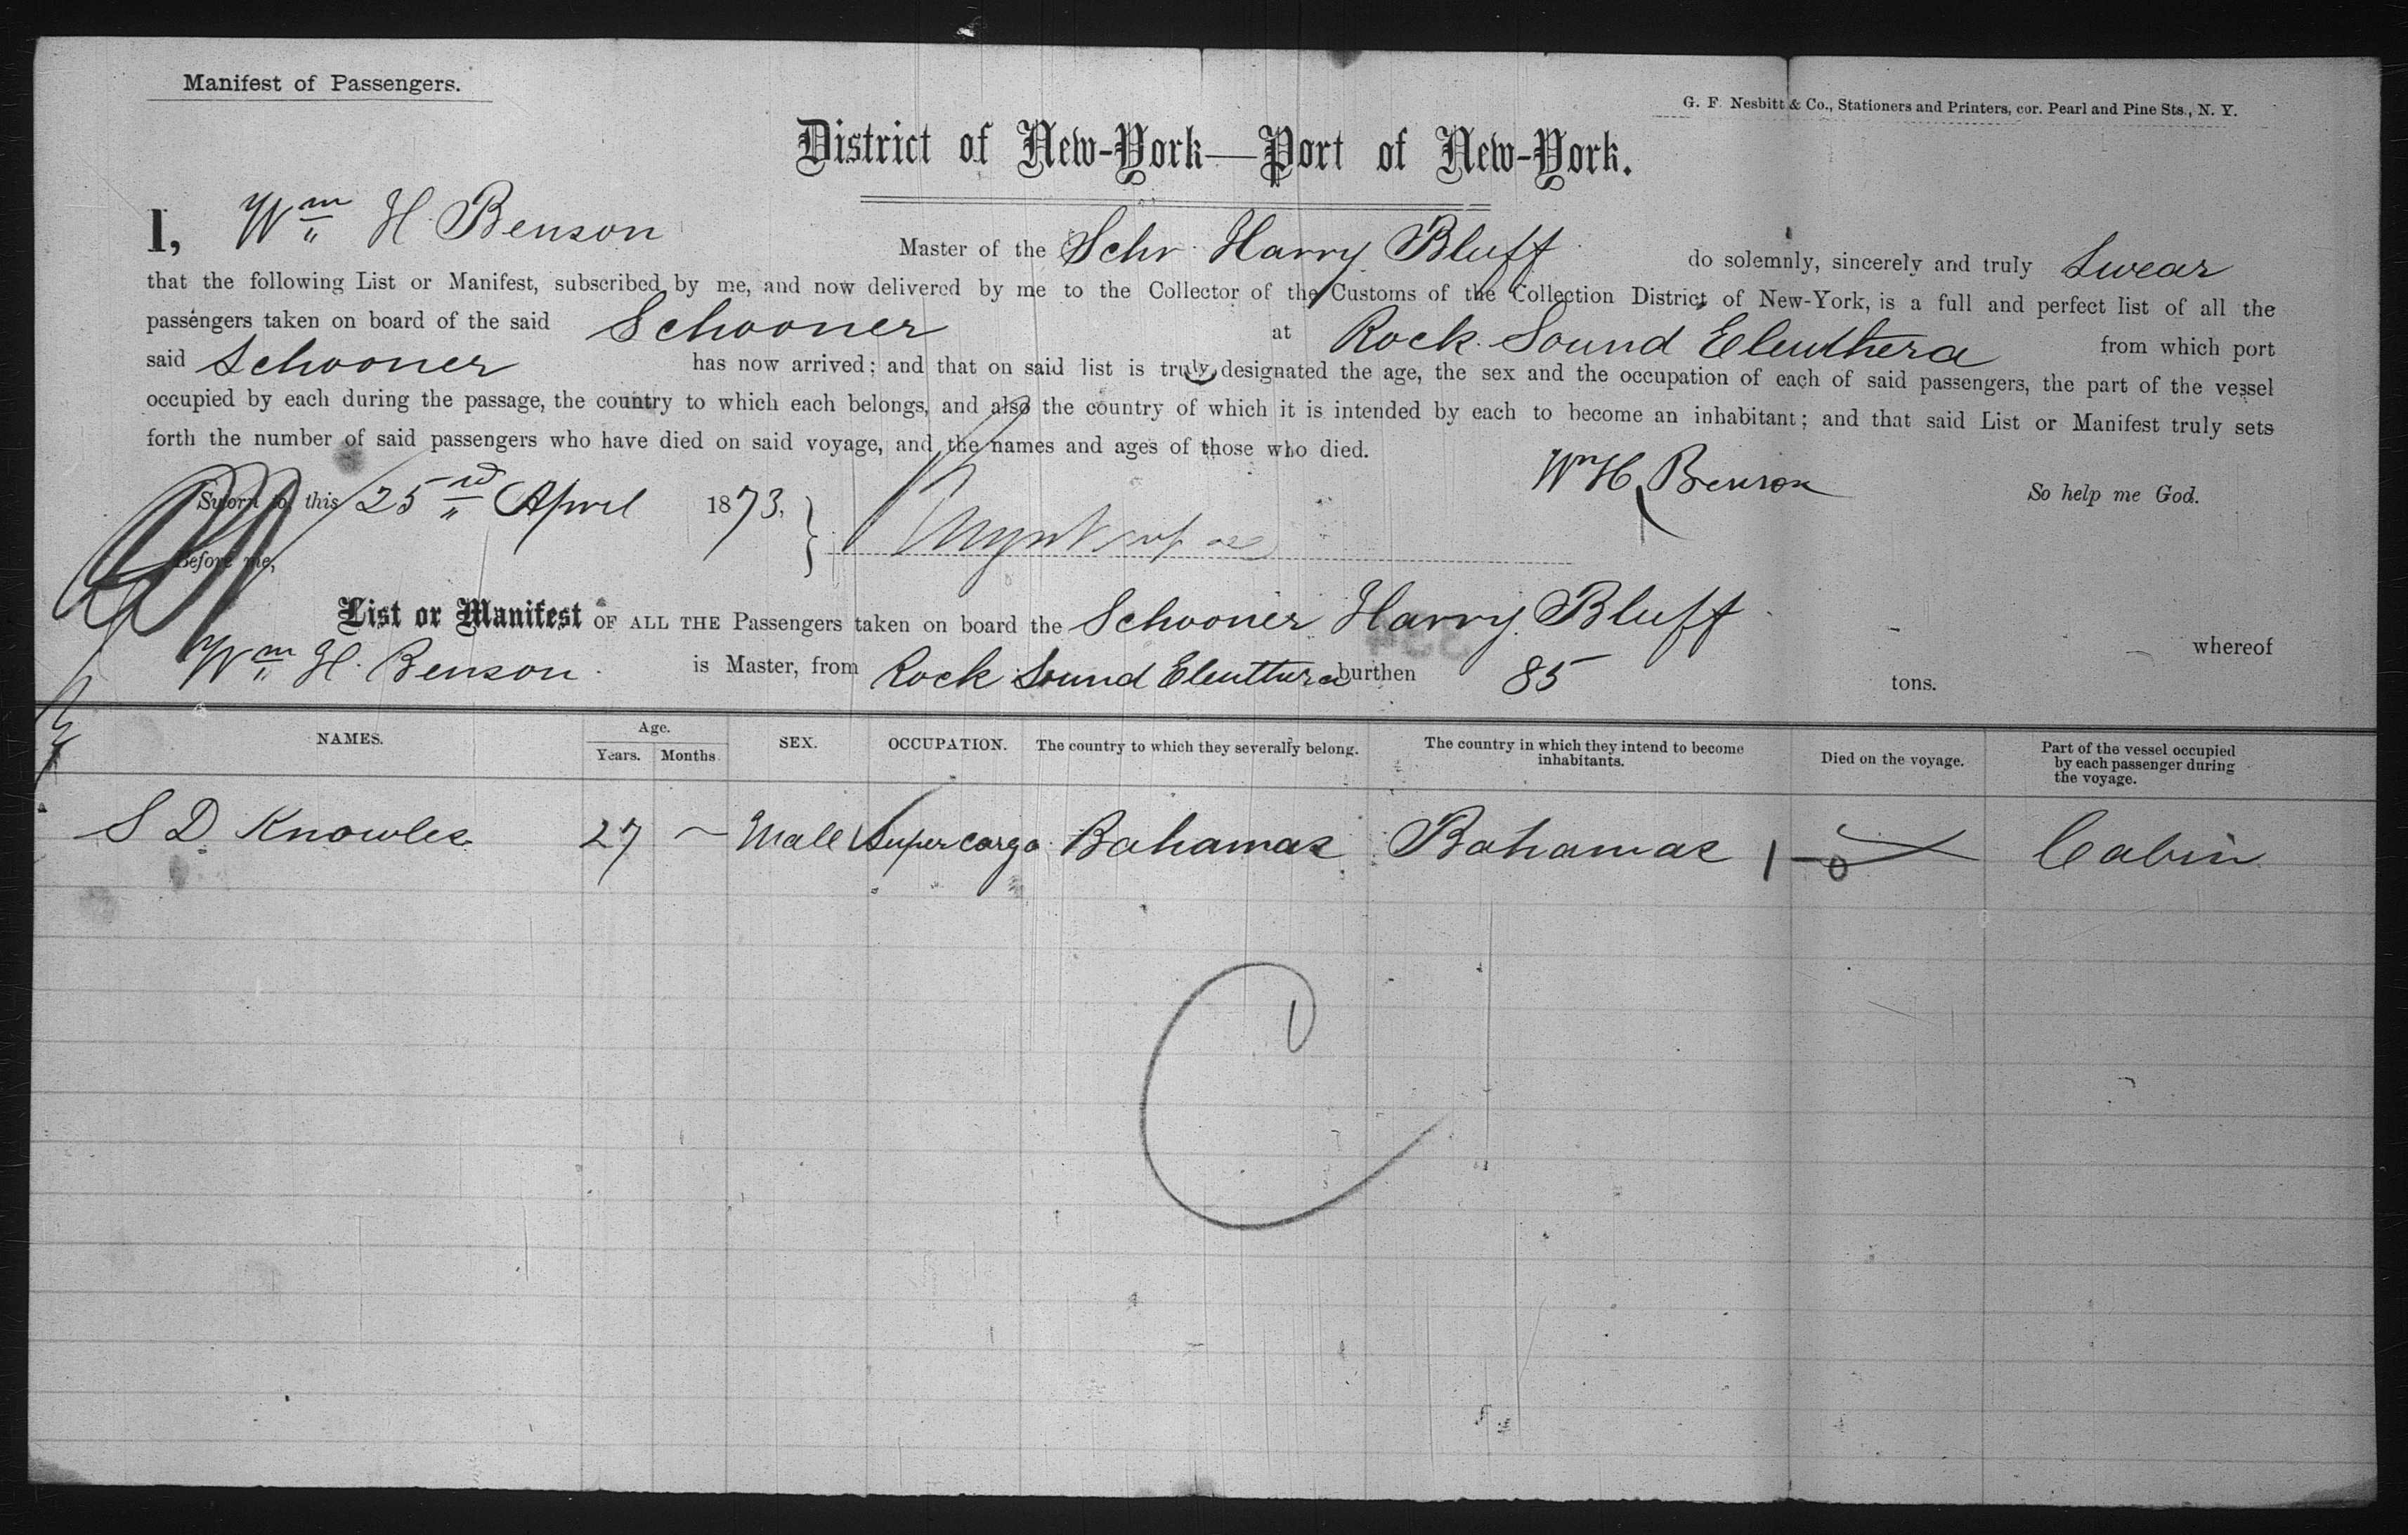 Manifest of Passengers.
G. F. Nesbitt & Co., Stationers and Printers, cor. Pearl and Pine Sts., N. Y.
District of New-York—Port of New-York.
I, Wm H. Benson Master of the Schr Harry Bluff do solemnly, sincerely and truly Swear
that the following List or Manifest, subscribed by me, and now delivered by me to the Collector of the Customs of the Collection District of New-York, is a full and perfect list of all the
passengers taken on board of the said Schooner at Rock Sound Eleuthera from which port
said Schooner has now arrived; and that on said list is truly designated the age, the sex and the occupation of each of said passengers, the part of the vessel
occupied by each during the passage, the country to which each belongs, and also the country of which it is intended by each to become an inhabitant; and that said List or Manifest truly sets
forth the number of said passengers who have died on said voyage, and the names and ages of those who died.
Wm H Benson So help me God.
Sworn to, this 25 April 1873,
Before me,
List or Manifest OF ALL THE Passengers taken on board the Schooner Harry Bluff whereof
Wm H. Benson is Master, from Rock Sound Eleuthera burthen 85 tons.
NAMES. Age. Years. Months SEX. OCCUPATION. The country to which they severally belong. The country in which they intend to become inhabitants. Died on the voyage. Part of the vessel occupied by each passenger during the voyage.
S D Knowles 27 Male Supercargo Bahamas Bahamas 1 – 0 Cabin